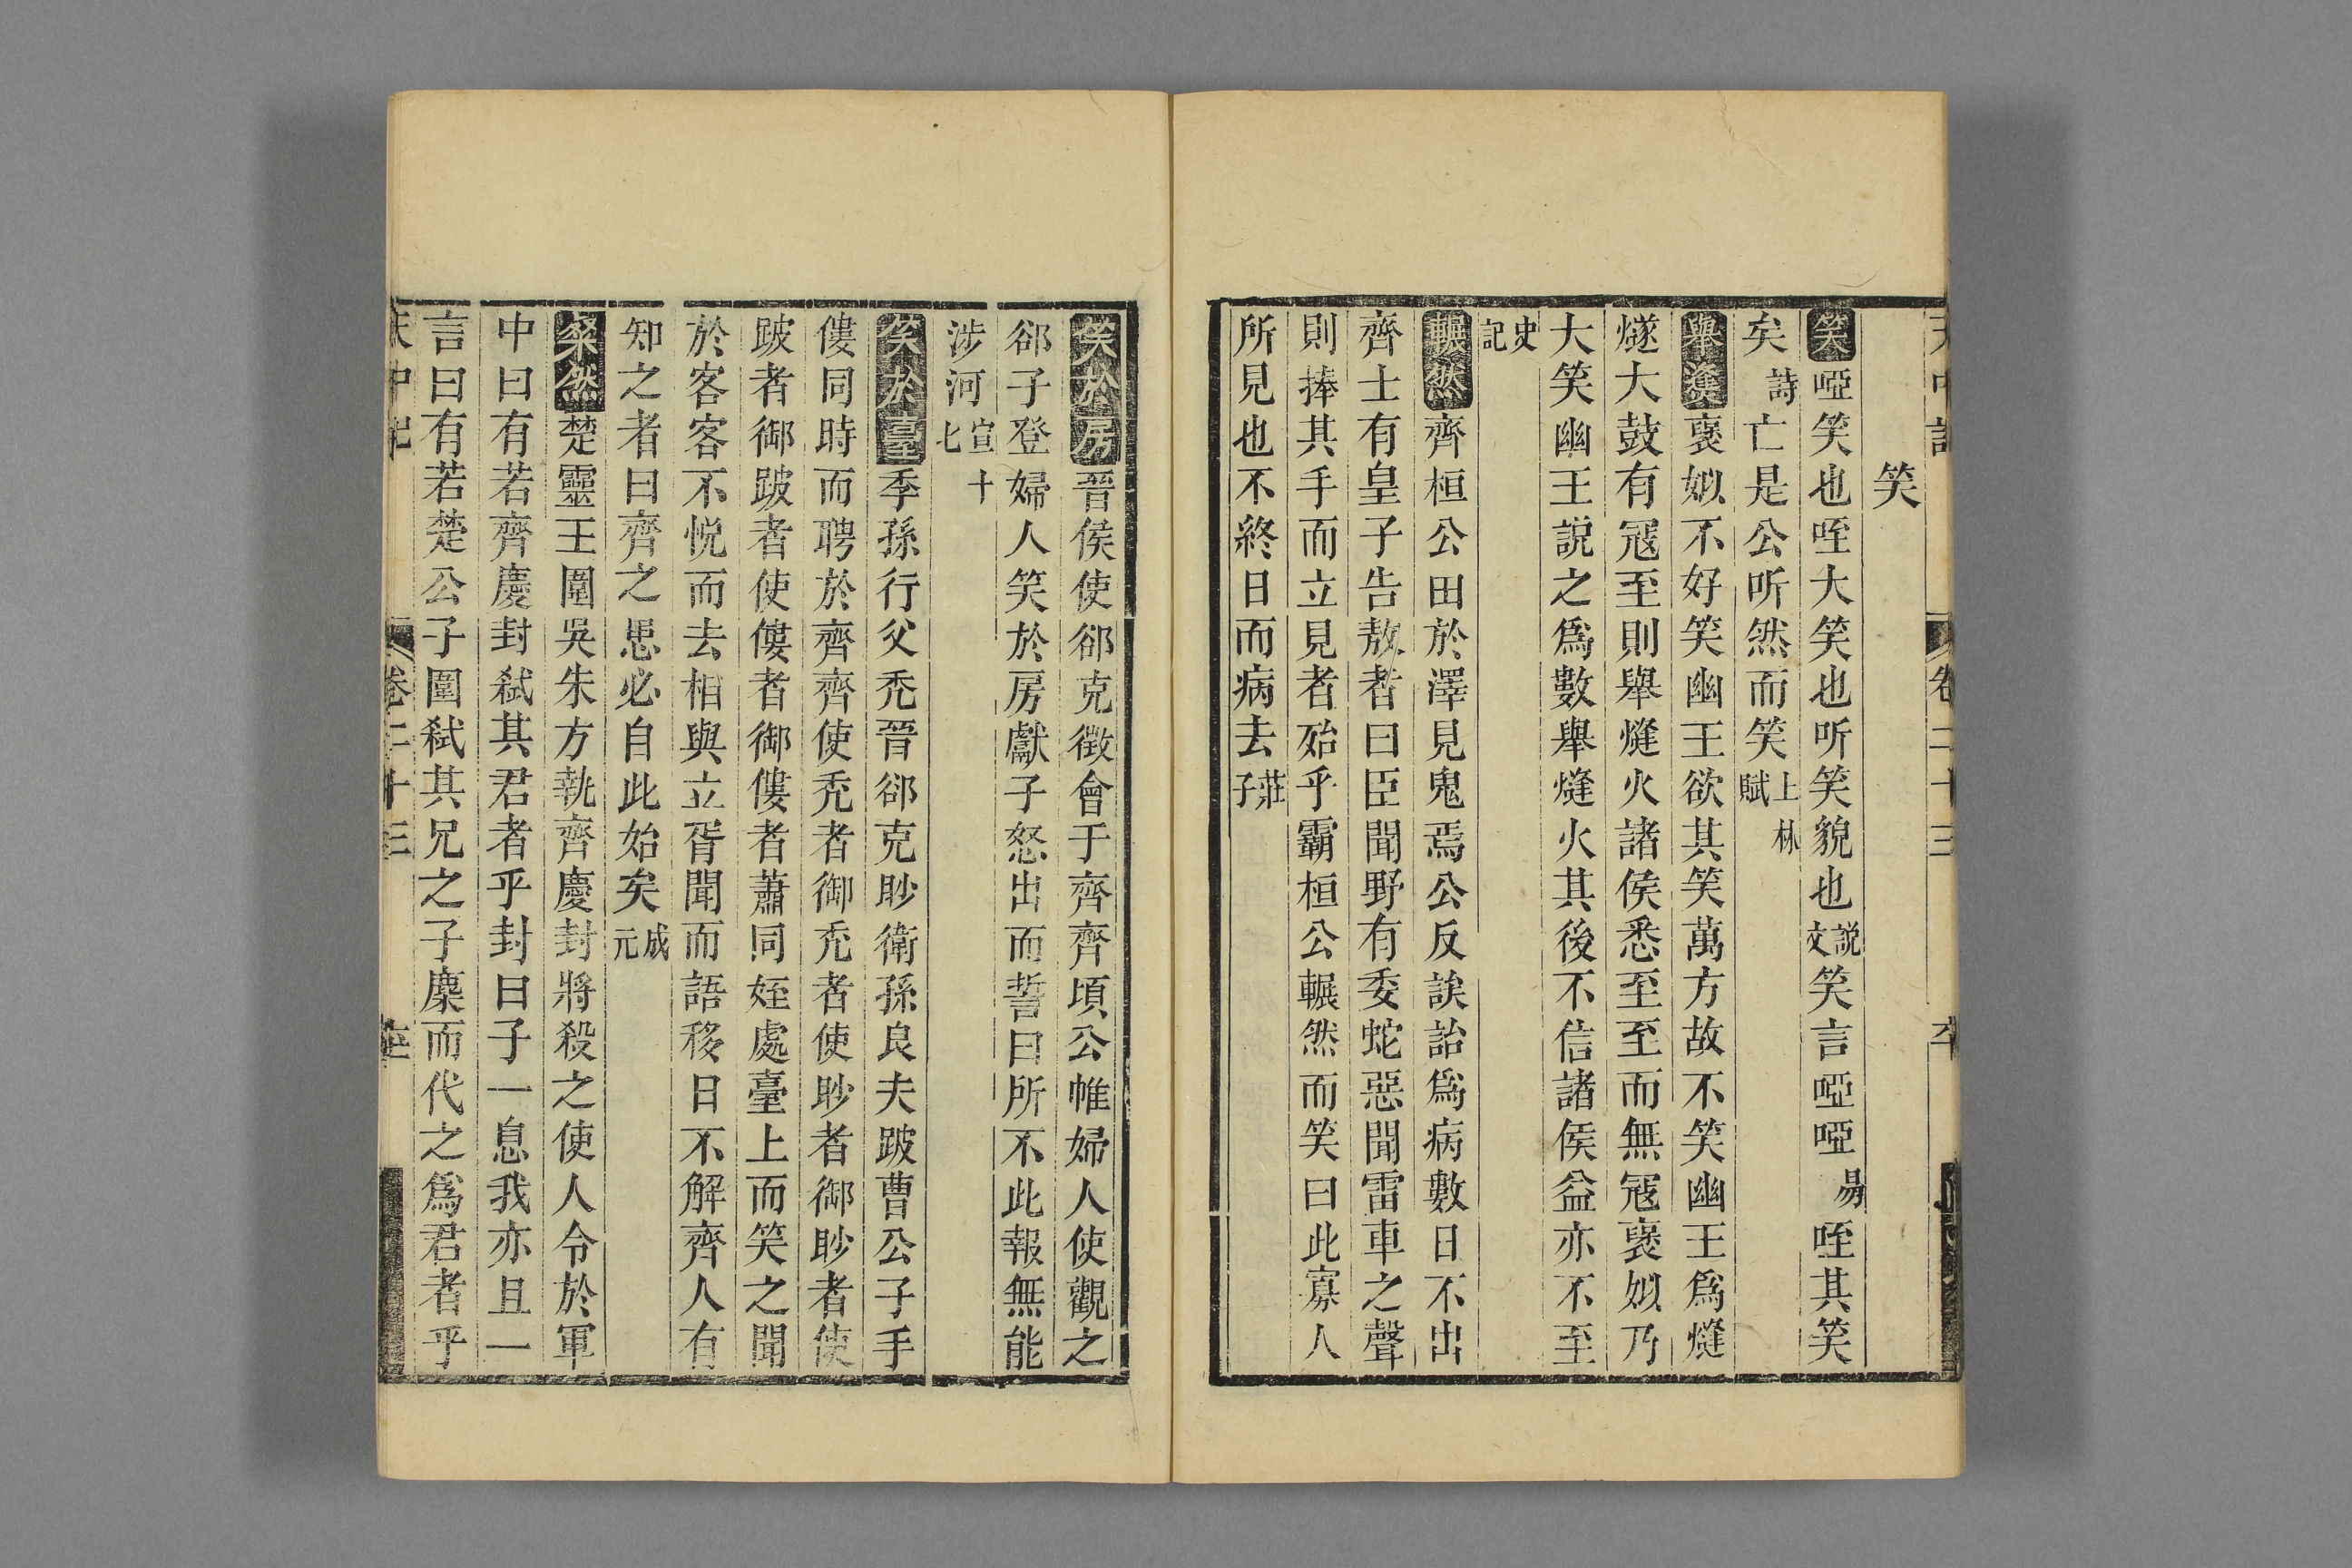 天中記 卷二十三 六十
笑
笑啞笑也咥大笑也听笑貌也說文笑言啞啞易咥其笑
矣詩亡是公听然而笑上林賦
舉㷭襃姒不好笑幽王欲其笑萬方故不笑幽王爲㷭
燧大鼓有寇至則舉㷭火諸侯悉至至而無寇襃姒乃
大笑幽王說之爲數舉㷭火其後不信諸侯益亦不至
史記
冁然齊桓公田於澤見鬼焉公反誒詒爲病數日不出
齊士有皇子告敖者曰臣聞野有委蛇惡聞雷車之聲
則捧其手而立見者殆乎霸桓公冁然而笑曰此寡人
所見也不終日而病去莊子
笑於房晉侯使郤克徵會于齊齊頃公帷婦人使觀之
郤子登婦人笑於房獻子怒出而誓曰所不此報無能
涉河宣十七
笑於臺季孫行父禿晉郤克眇衛孫良夫跛曹公子手
僂同時而聘於齊齊使禿者御禿者使眇者御眇者使
跛者御跛者使僂者御僂者蕭同姪處臺上而笑之聞
於客客不悅而去相與立胥閭而語移日不解齊人有
知之者曰齊之患必自此始矣成元
粲然楚靈王圍吳朱方執齊慶封將殺之使人令於軍
中曰有若齊慶封弒其君者乎封曰子一息我亦且一
言曰有若楚公子圍弒其兄之子麇而代之爲君者乎
天中記 卷二十三